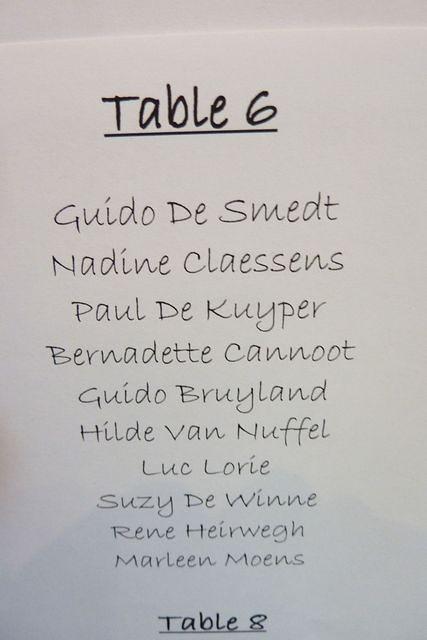 Table 6
Guido De Smedt
Nadine Claessens
Paul De Kuyper
Bernadette Cannoot
Guido Bruyland
Hilde Van Nuffel
Luc Lorie
Suzy De Winne
Rene Heirwegh
Marleen Moens
Table 8